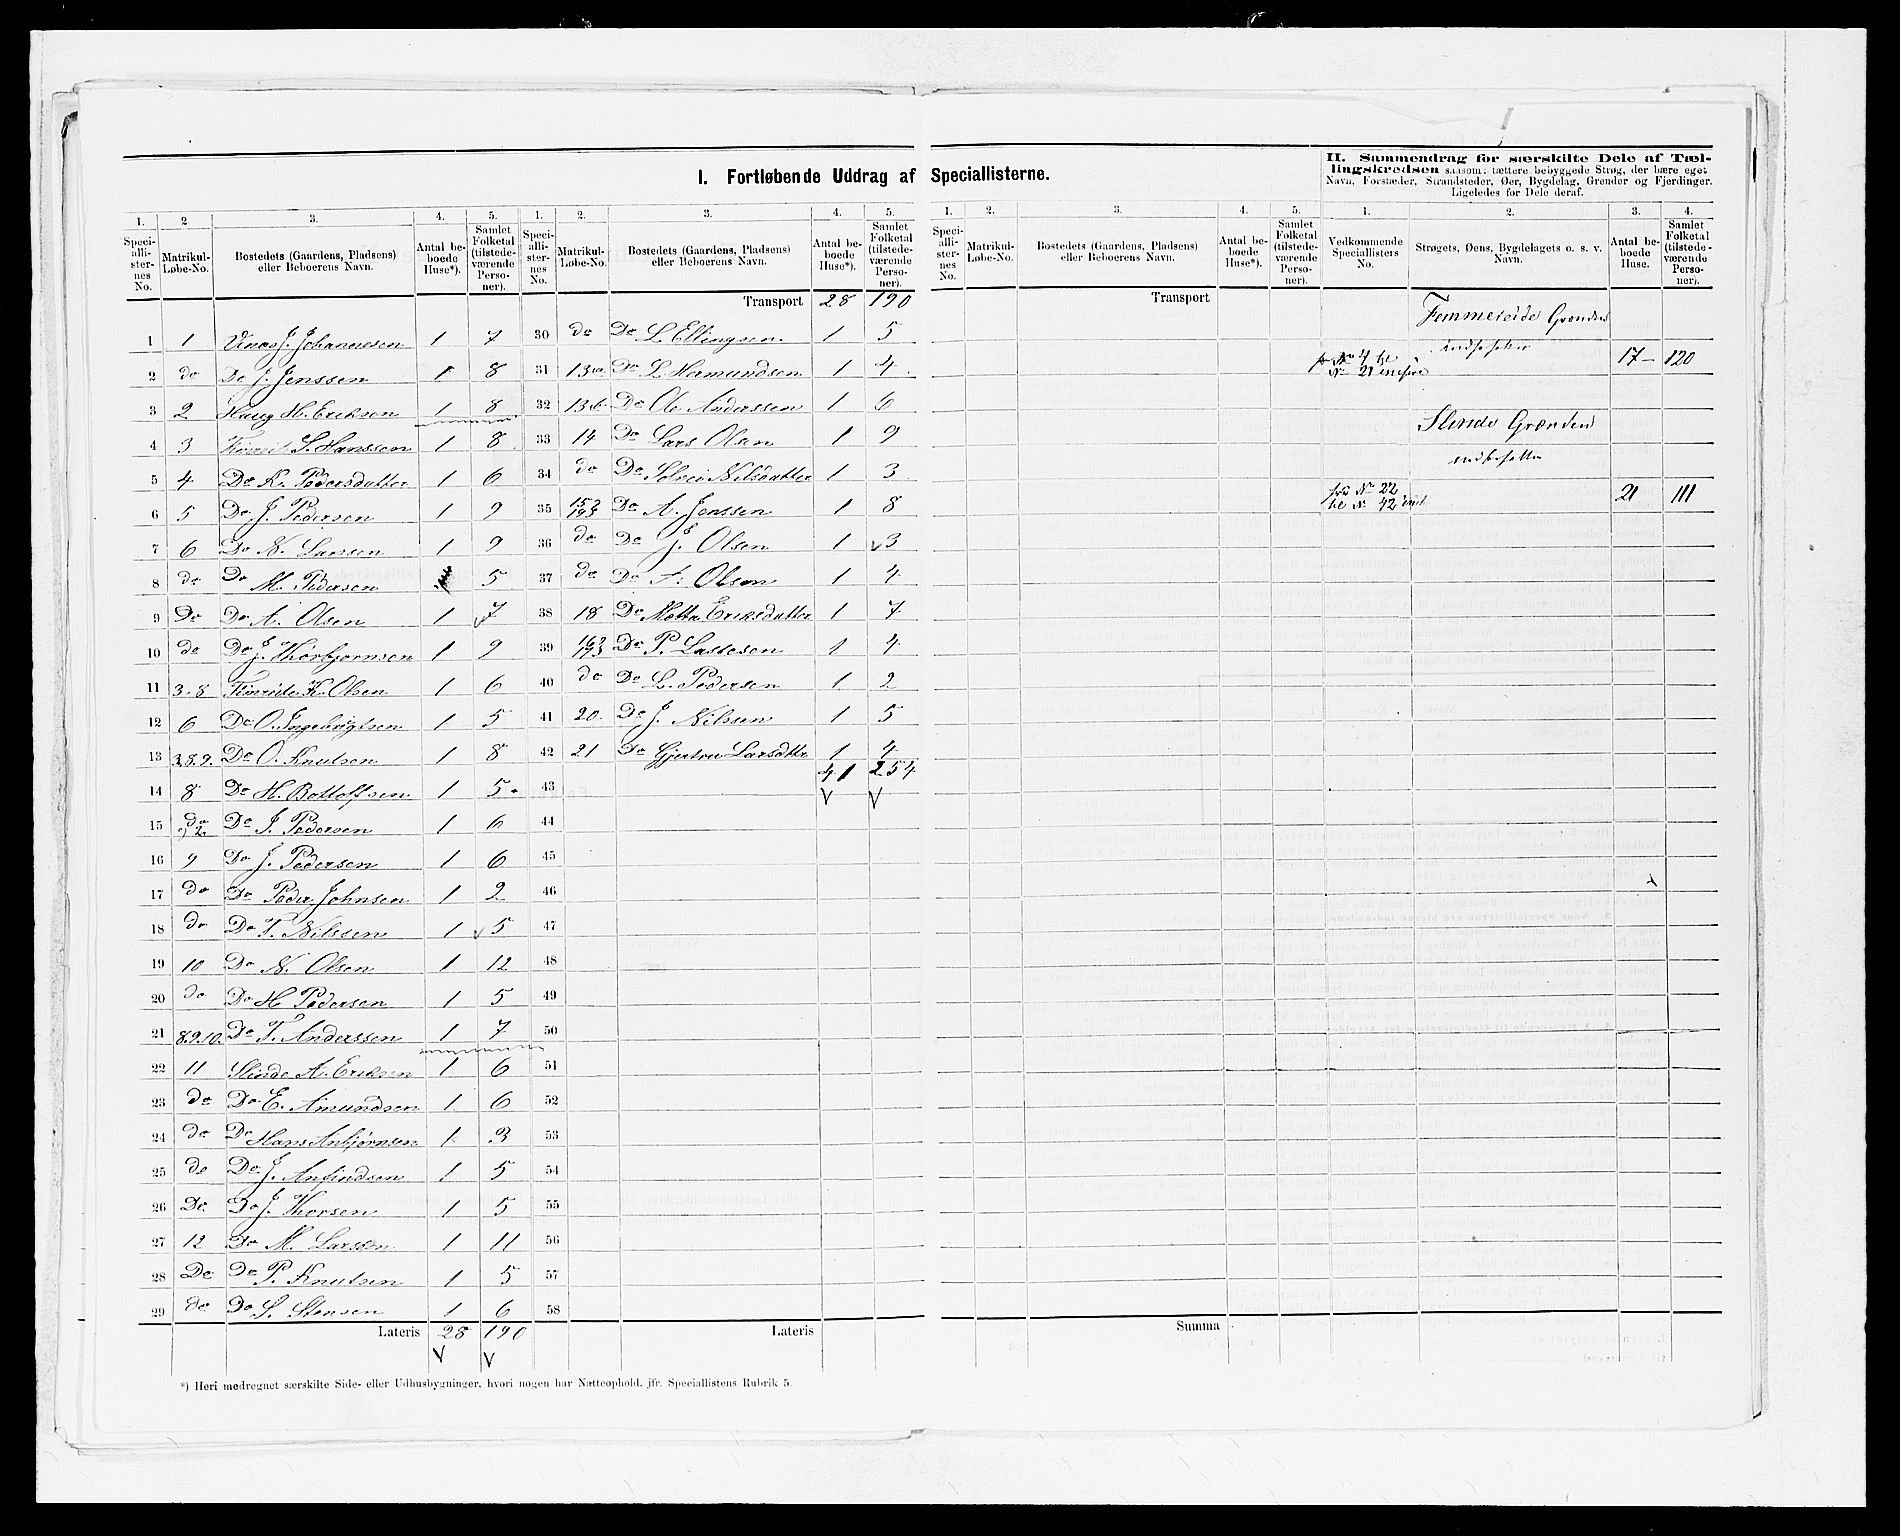 I. Fortløbende Uddrag af Speciallisterne.
II. Sammendrag for særskilte Dele af Tæl-
lingskredsen saasom: tættere bebyggede Strøg, der bære eget
Navn, Forstæder, Strandsteder, Øer, Bygdelag, Grender og Fjerdinger.
Ligeledes for Dele deraf.
1. 2 3. 4. 5. 1. 2. 3. 4. 5. 1. 2. 3. 4. 5. 1. 2. 3. 4.
Speci-alli-ster-nes No. Matrikul-Løbe-No. Bostedets (Gaardens, Pladsens) eller Beboerens Navn. Antal be-boede Huse*). Samlet Folketal (tilstede-værende Perso-ner).
Speci-alli-ster-nes No. Matrikul-Løbe-No. Bostedets (Gaardens, Pladsens) eller Beboerens Navn. Antal be-boede Huse*). Samlet Folketal (tilstede-værende Perso-ner).
Speci-alli-ster-nes No. Matrikul-Løbe-No. Bostedets (Gaardens, Pladsens) eller Beboerens Navn. Antal be-boede Huse*). Samlet Folketal (tilstede-værende Perso-ner).
Vedkommende Speciallisters No. Strøgets, Øens, Bygdelagets o. s. v. Navn. Antal be-boede Huse. Samlet Folketal (tilstede-værende Perso-ner).
1 1 J. Johannesen 1 7
2 do Do J. Jenssen 1 8
3 2 Haug H. Eriksen 1 8
4 3 S. Hanssen 1 8
5 4 Do K. Pedersdatter 1 6
6 5 Do J. Pedersen 1 9
7 6 Do N. Larsen 1 9
8 do Do M. Pedersen 5
9 Do Do A. Olsen 1 7
10 do Do J. Thorbjørnsen 1 9
11 3.8 K. Olsen 1 6
12 6 Do O. Ingebrigtsen 1 5
13 3.8.9. Do O. Knutsen 1 8
14 8 Do H. Bottolfsen 1 5
15 do 2. Do J. Pedersen 1 6
16 9 Do J. Pedersen 1 6
17 do Do Peder Johnsen 1 2
18 do Do T. Nilssen 1 5
19 10 Do N. Olsen 1 12
20 do Do H Pedersen 1 5
21 8.9.10. Do T. Anderssen 1 7
22 11 Slinde A. Eriksen 1 6
23 do Do E. Amundsen 1 6
24 do Do Hans Anbjørnsen 1 3
25 do Do J. Anfindsen 1 5
26 Do Do J. Thorsen 1 5
27 12 Do M. Larssen 1 11
28 Do Do P. Knutsen 1 5
29 do Do S. Stensen 1 6
Lateris 28 190
Transport 28 190
30 do Do L Ellingsen 1 5
31 13a Do L Hermundsen 1 4
32 13b Do Ole Anderssen 1 6
33 14 Do Lars Olsen 1 9
34 do Do Nilsdatter 1 3
35 Do A. Jenssen 1 8
36 do Do J. Olsen 1 3
37 do Do A. Olsen 1 4
38 18 Do Eriksdatter 1 7
39 Do P. Lassesen 1 4
40 do Do L. Pedersen 1 2
41 20. Do J. Nilssen 1 5
42 21 Do Gjertru Larsdtr 1 4
43 41 254
44
45
46
47
48
49
50
51
52
53
54
55
56
57
58
Lateris
Transport
Summa
Grænden
No 4 til
No 21 17 120
Slinde Grænden
No 22
No 42 21 111
*) Heri medregnet særskilte Side- eller Udhusbygninger, hvori nogen har Natteophold, jfr. Speciallistens Rubrik 5.